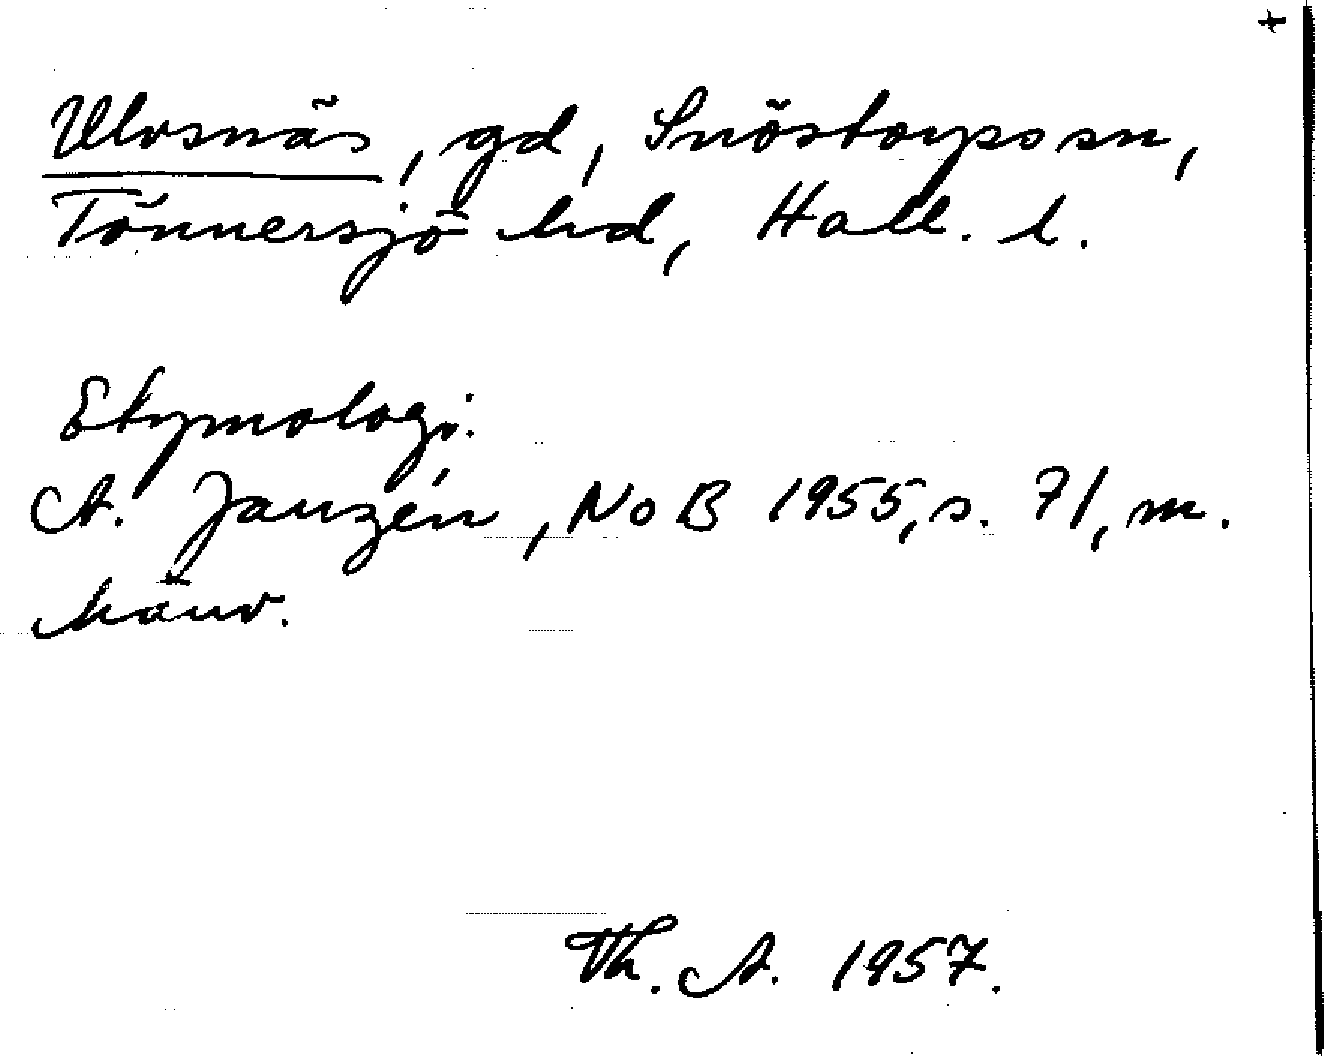 +
Ulvsnäs, gd, Snöstorps sn,
Tönnersjö hd, Hall. l.
Etymologi:
A. Janzén, NoB 1955, s. 71, m.
hänv.
Th. A. 1957.